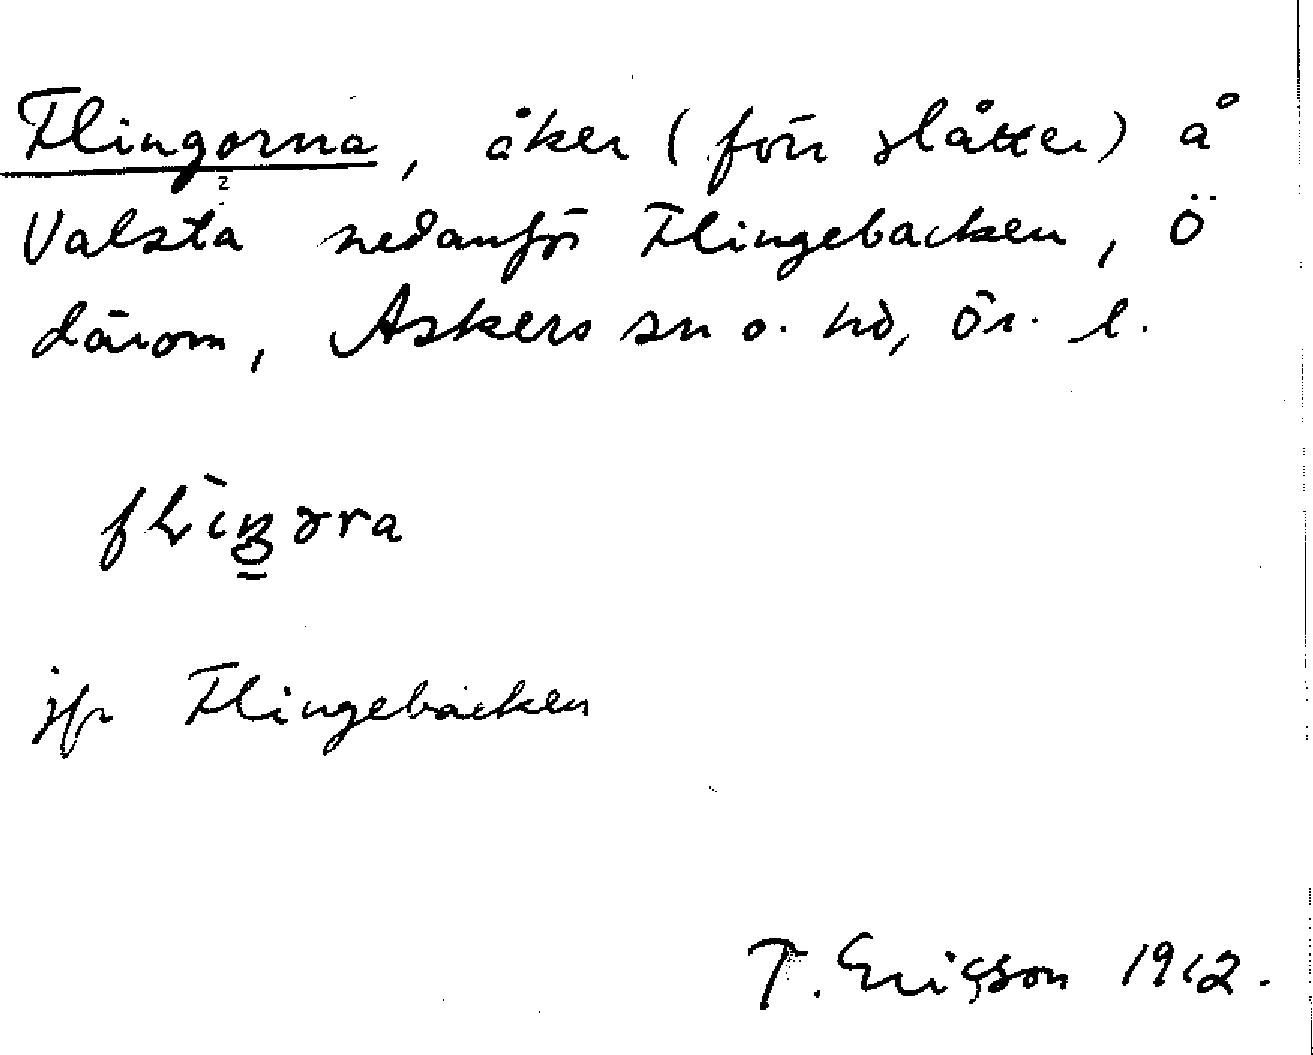 Flingorna, åker (förr slåtter) å
Valsta nedanför Flingebacken, Ö
därom, Askers sn o. hd, Ör. l.
jfr Flingebacken
T. Ericsson 1912.